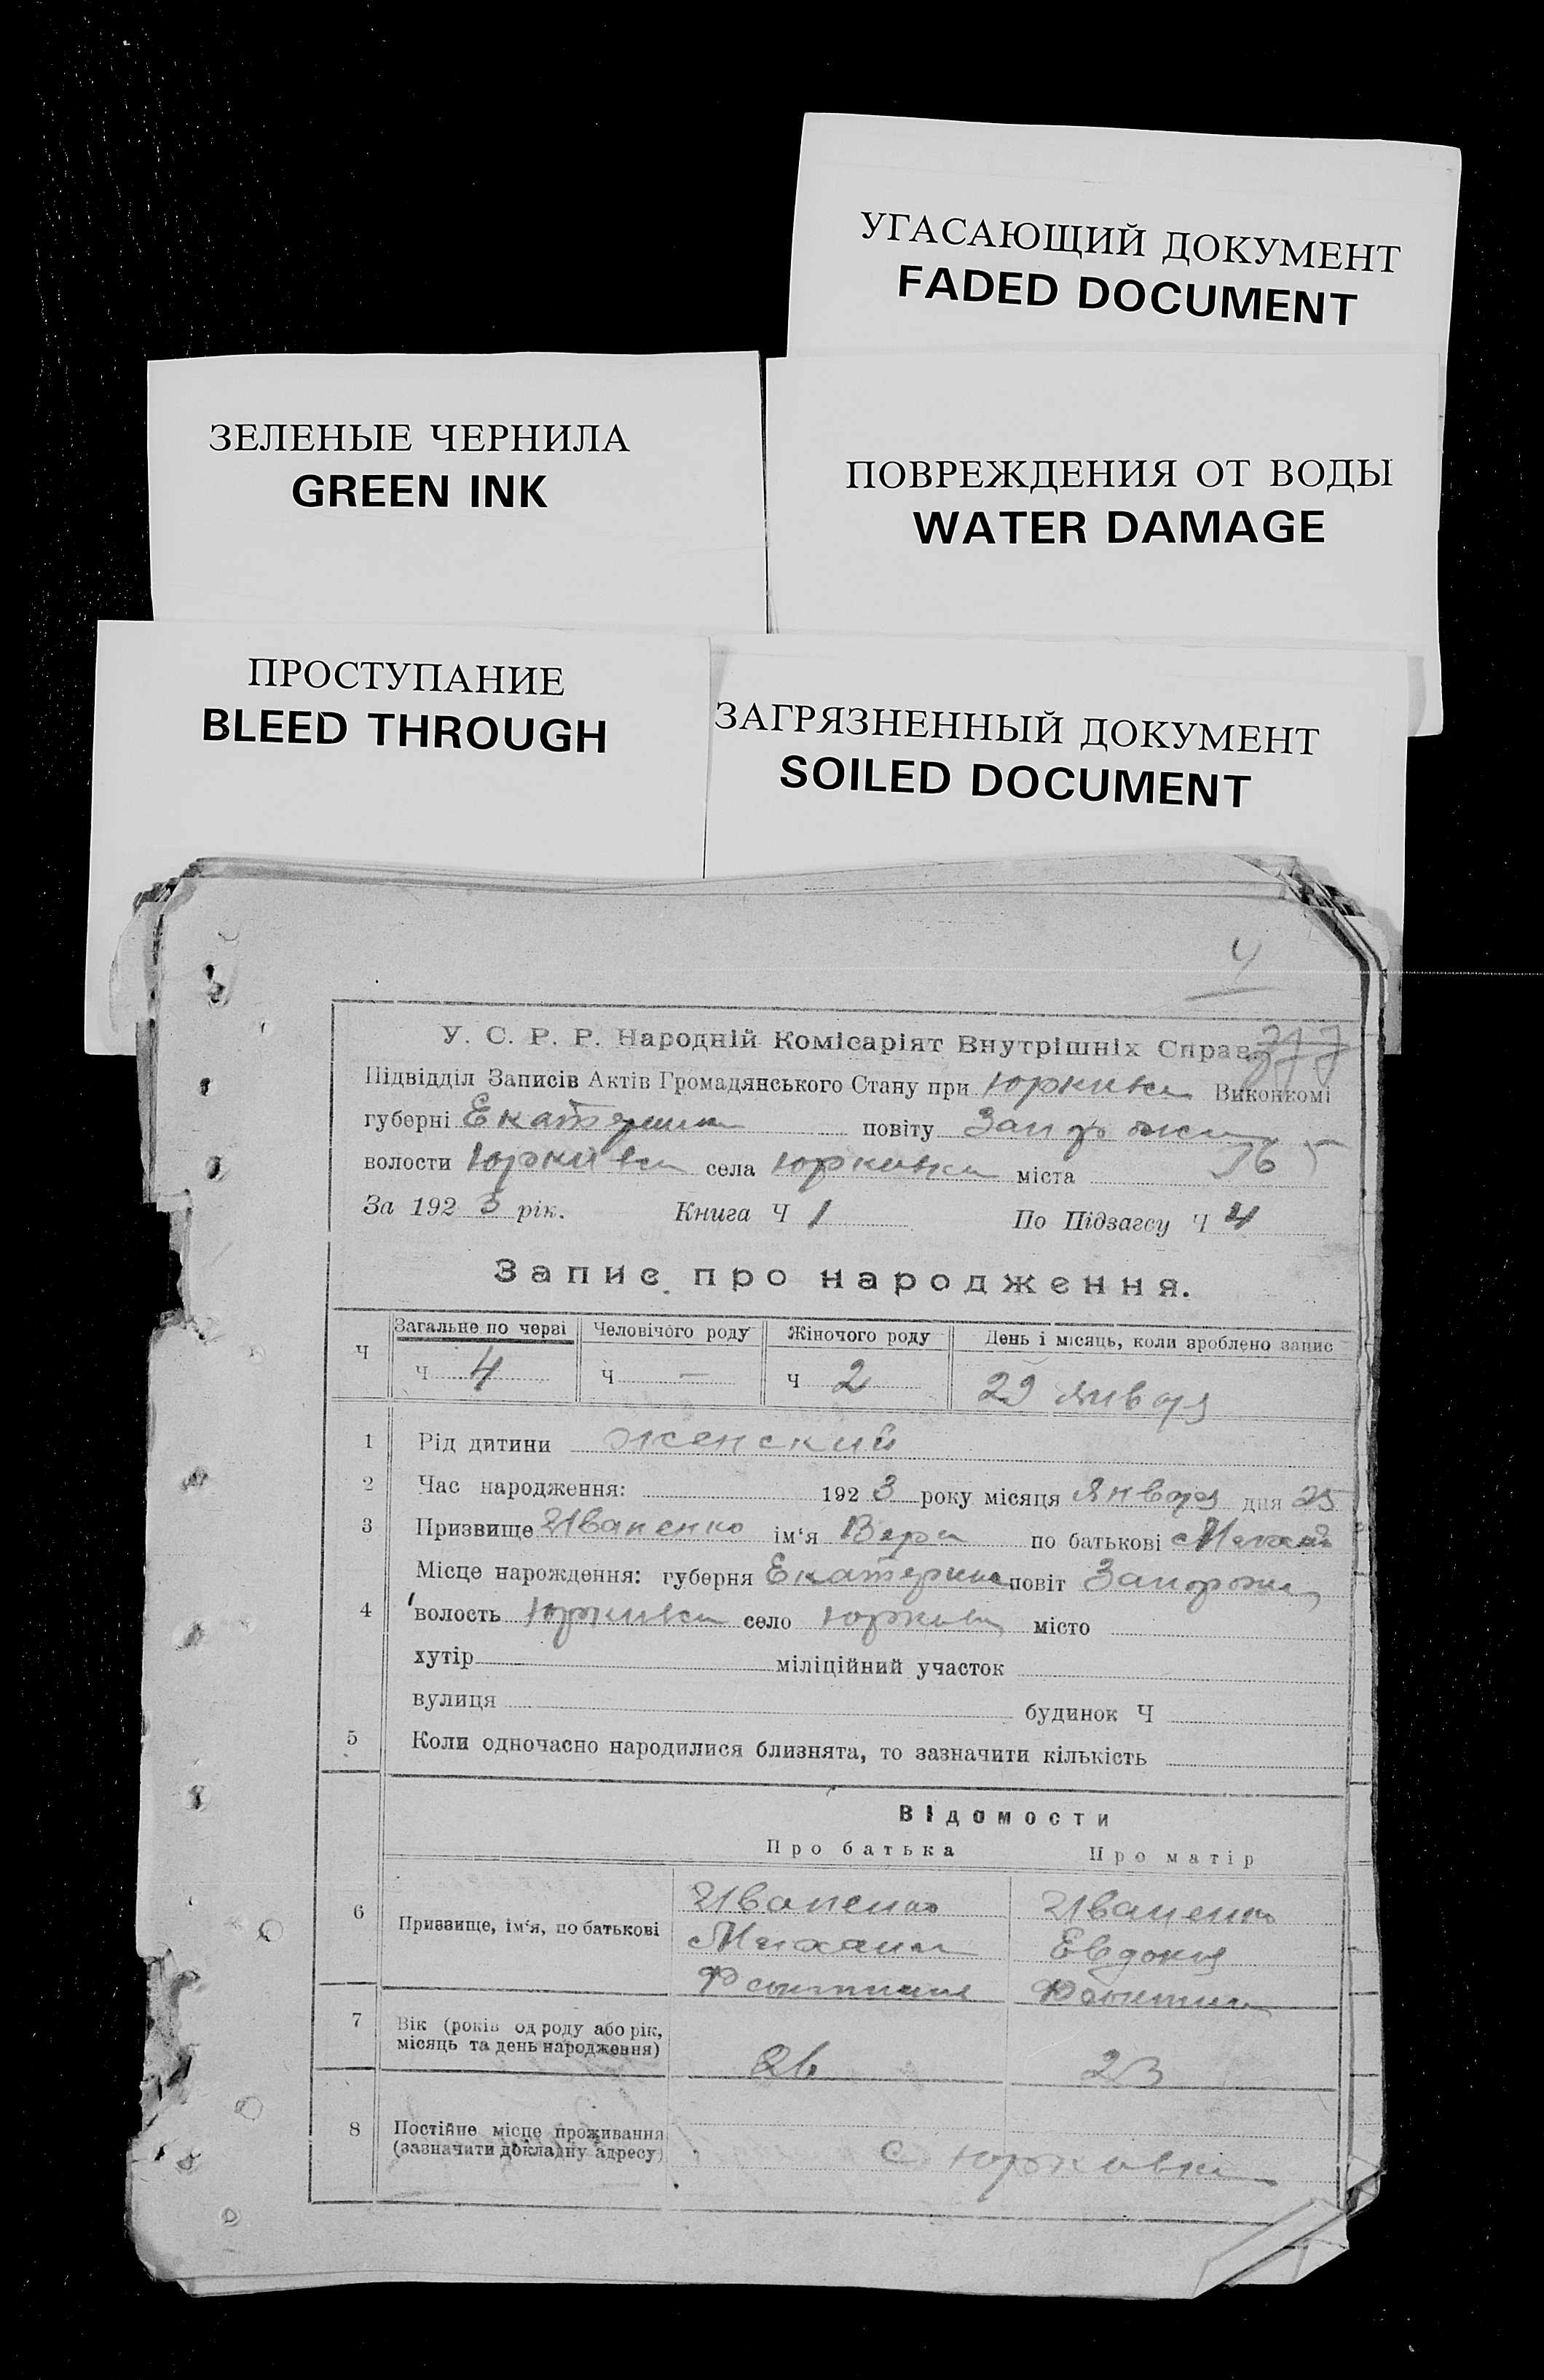 УГАСАЮЩИЙ ДОКУМЕНТ
FADED DOCUMENT
ЗЕЛЕНЫЕ ЧЕРНИЛА
GREEN INK
ПОВРЕЖДЕНИЯ ОТ ВОДЫ
WATER DAMAGE
ПРОСТУПАНИЕ
BLEED THROUGH
ЗАГРЯЗНЕННЫЙ ДОКУМЕНТ
SOILED DOCUMENT
4
У. С. Р. Р. Народній Комісаріят Внутрішніх Справ.
Підвідділ Записів Актів Громадянського Стану при Юркивк Виконкомі
губерні Екатерин повіту Запорож
волости Юркивк села Юркивка міста
За 192 3 рік. Книга Ч 1 По Підзагсу Ч 4
Запис про народження.
Ч Загальне по черзі Человічого роду Жіночого роду День і місяць, коли зроблено запис
Ч 4 Ч — Ч 2 29 января
1 Рід дитини женский
2 Час народження: 192 3 року місяця января дня 25
3 Призвище Иваненко ім'я Вера по батькові
Місце нарождення: губерня Екатерин повіт Запорож
4 волость Юркивк село Юрковк місто
хутір міліційний участок
вулиця будинок Ч
5 Коли одночасно народилися близнята, то зазначити кількість
Відомости
Про батька Про матір
6 Призвище, ім'я, по батькові
Иваненко Иваненко
Михаил Евдокия
7 Вік (років од роду або рік, місяць та день народження) 26 23
8 Постійне місце проживання
(зазначити докладну адресу) с Юрковка